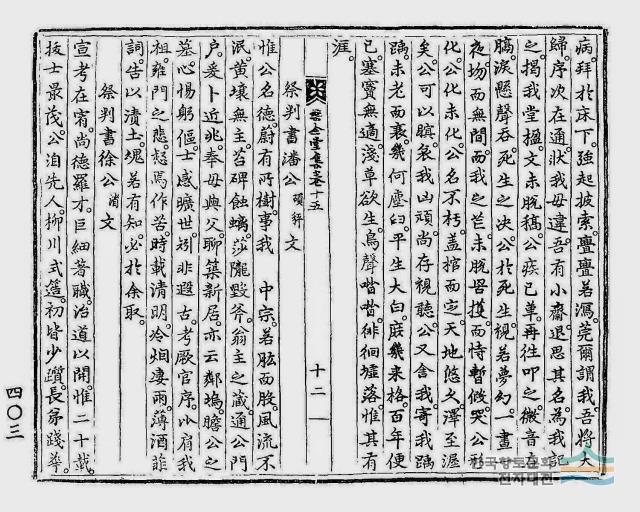 病拜於床下强起披索亹亹若瀉莞爾謂我吾將大
歸序次在通狀我毋違吾有小齋退思其名爲我記
之揭我堂楹文未脫稿公疾已革再往叩之微音在
膈淚懸聲吞死生之决公於死生視若夢幻一晝一
夜坊而無間而我之芒未脫罟擭而恃暫微哭公形
化公化未化公名不朽盖棺而定天地悠久澤至渥
矣公可以瞑哀我凶頑尚存視聽公又舍我寄我踽
踽未老而衰幾何塵臼平生大白庶幾来格百年便
已塞竇無適淺草欲生鳥聲喈喈徘徊墟落惟其有
涯
祭判書潘公碩枰文
惟公名德蔚有所樹事我 中宗若肱而股風流不
泯黄壤無主苔碑蝕螭莎隴毁斧翁主之藏通公門
户爰卜近兆奉母與父聊築新居亦云鄰塢瞻公之
墓心惕躬傴士感曠世矧非遐古考厥官序以肩我
祖雍門之悲嶷焉作苦時載清明冷烟凄雨薄酒菲
詞告以漬土塊若有知必於余取
祭判書徐公渻文
宣考在宥尚德羅才巨細著職治道以開惟二十載
拔士最茂公洎先人柳川式簉初皆少躓長茅踐華
十二
四〇三
한국향토문화
전자대전